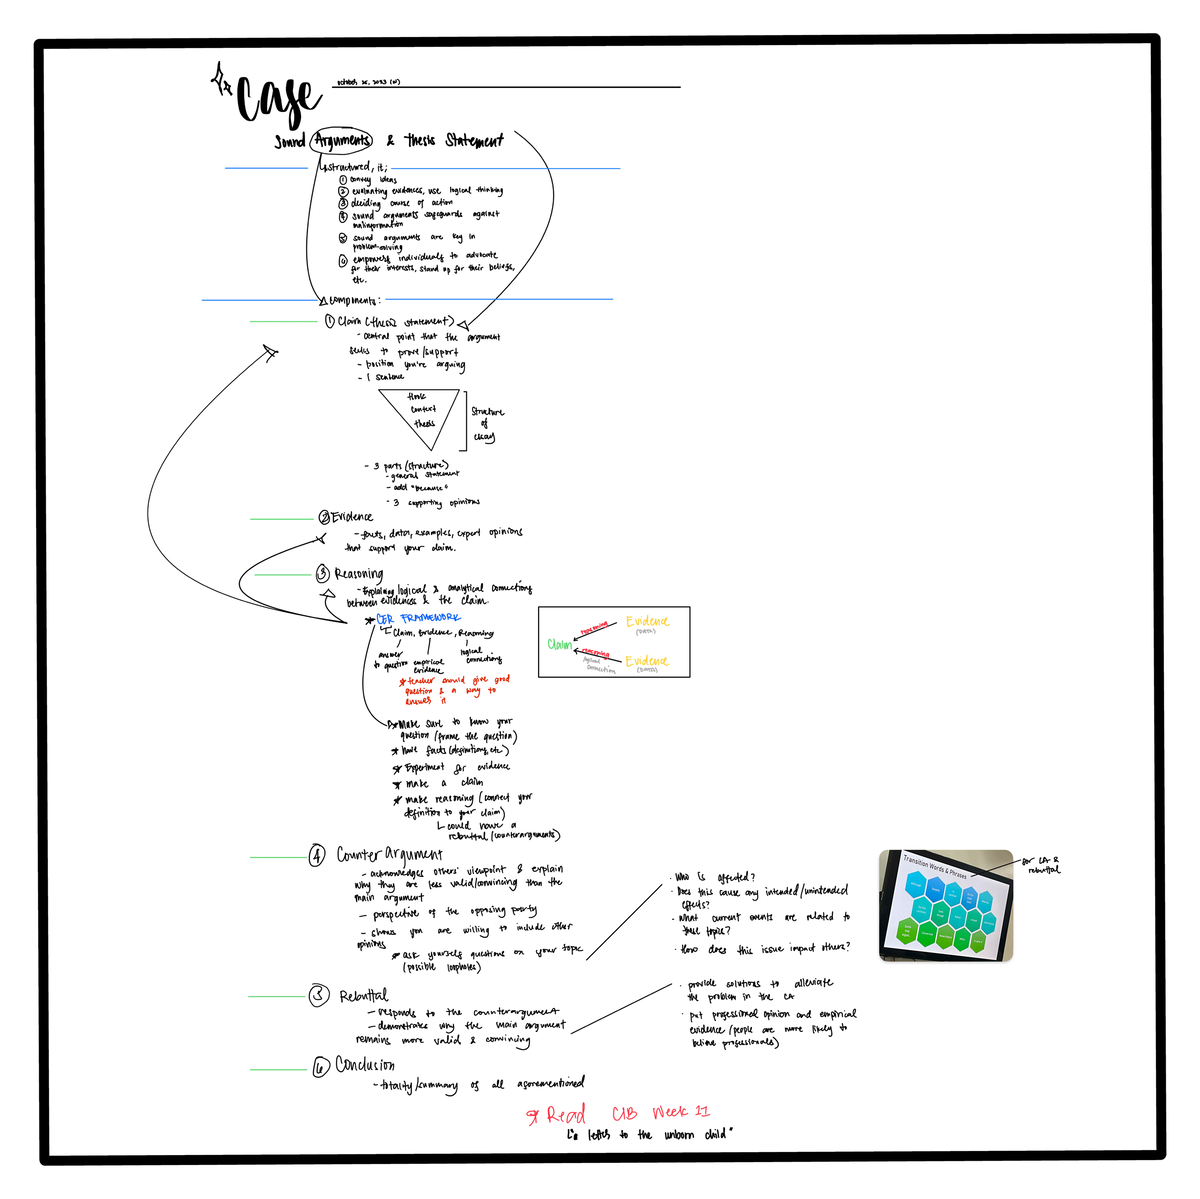 Case
October 26, 2023 (W)
Sound Arguments & Thesis Statement
structured, it;
① convey ideas
② evaluating evidences, use logical thinking
③ deciding course of action
④ sound arguments safeguards against
malinformation
⑤ sound arguments are key in
problem-solving
⑥ empowers individuals to advocate
for their interests, stand up for their beliefs,
etc.
components:
① Claim (thesis statement)
- central point that the argument
seeks to prove/support
- position you're arguing
- 1 sentence
Hook
Context
thesis
Structure
of
essay
- 3 parts (structure)
- general statement
- add "because"
- 3 supporting opinions
② Evidence
- facts, data, examples, expert opinions
that support your claim.
③ Reasoning
- Explaining logical & analytical connections
between evidences & the claim.
* CER FRAMEWORK
Claim, Evidence, Reasoning
answer
to question
empirical
evidence
logical
connections
* teacher should give good
question & a way to
answer it
Claim
reasoning
Evidence
(DATA)
reasoning
logical
connection
Evidence
(DATA)
* Make sure to know your
question (frame the question)
* Have facts (definitions, etc)
* Experiment for evidence
* make a claim
* make reasoning (connect your
definition to your claim)
could have a
rebuttal (counterarguments)
④ Counter Argument
- acknowledges others' viewpoint & explain
why they are less valid/convincing than the
main argument
- perspective of the opposing party
- shows you are willing to include other
opinions
* ask yourself questions on your topic
(possible loopholes)
· Who is affected?
· Does this cause any intended/unintended
effects?
· What current events are related to
these topic?
· How does this issue impact others?
Transition Words & Phrases
for CA &
rebuttal
⑤ Rebuttal
- responds to the counterargument
- demonstrates why the main argument
remains more valid & convincing
· provide solutions to alleviate
the problem in the CA
· put professional opinion and empirical
evidence (people are more likely to
believe professionals)
⑥ Conclusion
- totality/summary of all aforementioned
* Read CIB Week 11
"a letter to the unborn child"